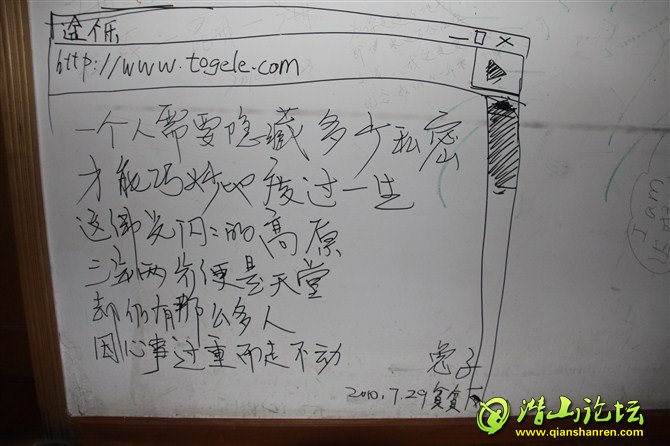 途个乐
http://www.togele.com
一个人需要隐藏多少私密
才能巧妙地度过一生
这佛光闪:的高原
三步两步便是天堂
却仍有那么多人
因心事过重而走不动
兔子
2010.7.29
I am
潜山论坛
www.qianshanren.com